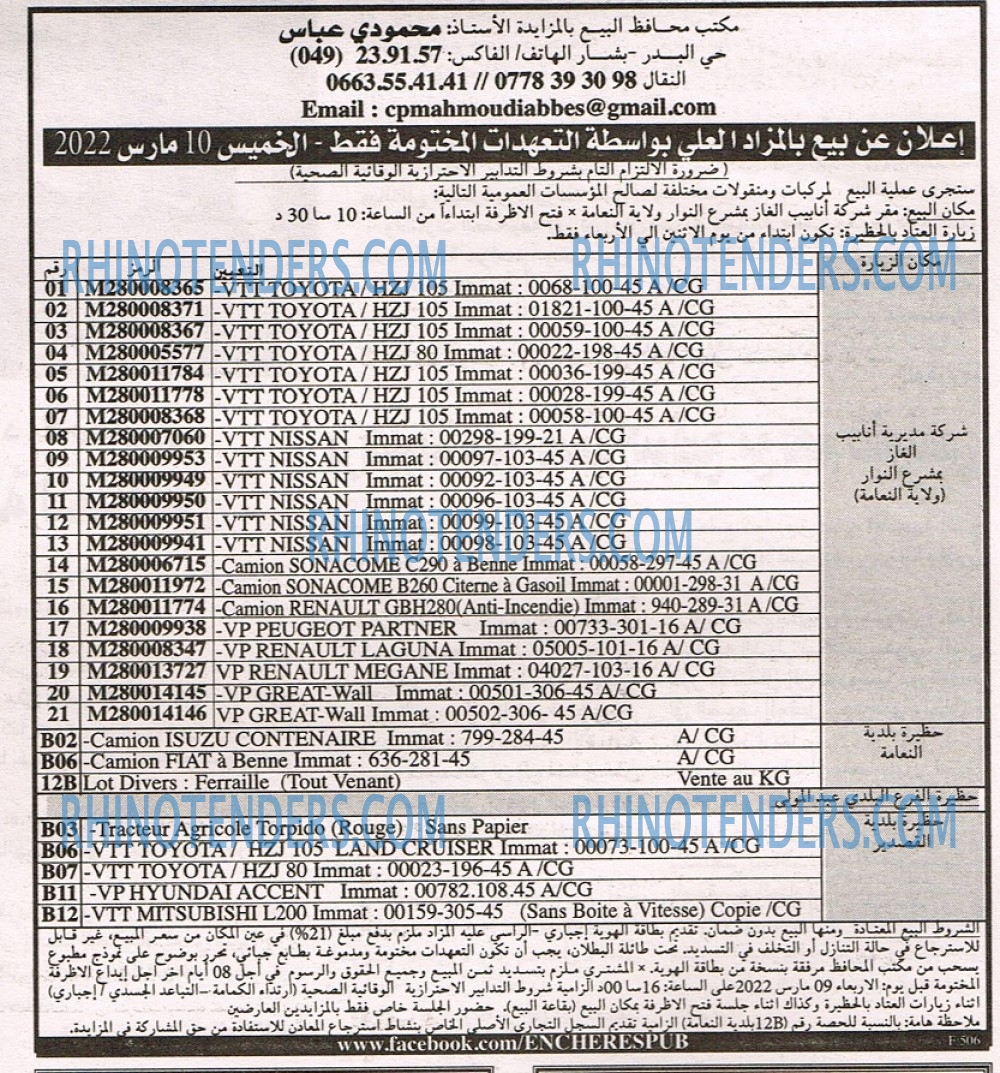 مكتب محافظ البيع بالمزايدة الأستاذ: محمودي عباس
حي البدر -بشار الهاتف/ الفاكس: 23.91.57 (049)
النقال 0778 39 30 98 // 0663.55.41.41
Email : cpmahmoudiabbes@gmail.com
إعلان عن بيع بالمزاد العلي بواسطة التعهدات المختومة فقط - الخميس 10 مارس 2022
( ضرورة الالتزام التام بشروط التدابير الاحترازية الوقائية الصحية)
ستجرى عملية البيع لمركبات ومنقولات مختلفة لصالح المؤسسات العمومية التالية:
مكان البيع: مقر شركة أنابيب الغاز بمشرع النوار ولاية النعامة × فتح الاظرفة ابتداءا من الساعة: 10 سا 30 د
زيارة العتاد بالحظيرة: تكون ابتداء من يوم الاثنين الى الأربعاء فقط.
RHINOTENDERS.COM RHINOTENDERS.COM
رقم الرمز التعيين مكان الزيارة
01 M280008365 -VTT TOYOTA / HZJ 105 Immat : 0068-100-45 A /CG
02 M280008371 -VTT TOYOTA / HZJ 105 Immat : 01821-100-45 A /CG
03 M280008367 -VTT TOYOTA / HZJ 105 Immat : 00059-100-45 A /CG
04 M280005577 -VTT TOYOTA / HZJ 80 Immat : 00022-198-45 A /CG
05 M280011784 -VTT TOYOTA / HZJ 105 Immat : 00036-199-45 A /CG
06 M280011778 -VTT TOYOTA / HZJ 105 Immat : 00028-199-45 A /CG
07 M280008368 -VTT TOYOTA / HZJ 105 Immat : 00058-100-45 A /CG
08 M280007060 -VTT NISSAN Immat : 00298-199-21 A /CG
09 M280009953 -VTT NISSAN Immat : 00097-103-45 A /CG
10 M280009949 -VTT NISSAN Immat : 00092-103-45 A /CG
11 M280009950 -VTT NISSAN Immat : 00096-103-45 A /CG
12 M280009951 -VTT NISSAN Immat : 00099-103-45 A /CG
13 M280009941 -VTT NISSAN Immat : 00098-103-45 A /CG
RHINOTENDERS.COM
14 M280006715 -Camion SONACOME C290 à Benne Immat : 00058-297-45 A /CG
15 M280011972 -Camion SONACOME B260 Citerne à Gasoil Immat : 00001-298-31 A /CG
16 M280011774 -Camion RENAULT GBH280(Anti-Incendie) Immat : 940-289-31 A /CG
17 M280009938 -VP PEUGEOT PARTNER Immat : 00733-301-16 A/ CG
18 M280008347 -VP RENAULT LAGUNA Immat : 05005-101-16 A/ CG
19 M280013727 -VP RENAULT MEGANE Immat : 04027-103-16 A/ CG
20 M280014145 -VP GREAT-Wall Immat : 00501-306-45 A/CG
21 M280014146 VP GREAT-Wall Immat : 00502-306- 45 A/CG
شركة مديرية أنابيب
الغاز
بمشرع النوار
(ولاية النعامة)
B02 -Camion ISUZU CONTENAIRE Immat : 799-284-45 A/ CG
B06 -Camion FIAT à Benne Immat : 636-281-45 A/ CG
12B Lot Divers : Ferraille (Tout Venant) Vente au KG
حظيرة بلدية
النعامة
حظيرة الفرع البلدي عبد المولى
RHINOTENDERS.COM RHINOTENDERS.COM
B03 -Tracteur Agricole Torpido (Rouge) Sans Papier
B06 -VTT TOYOTA / HZJ 105 LAND CRUISER Immat : 00073-100-45 A/CG
B07 -VTT TOYOTA / HZJ 80 Immat : 00023-196-45 A/CG
B11 -VP HYUNDAI ACCENT Immat : 00782.108.45 A/CG
B12 -VTT MITSUBISHI L200 Immat : 00159-305-45 (Sans Boite à Vitesse) Copie /CG
حظيرة بلدية
القصدير
الشروط البيع المعتادة ومنها البيع بدون ضمان. تقديم بطاقة الهوية إجباري -الراسي عليه المزاد ملزم بدفع مبلغ (21%) في عين المكان من سعر المبيع، غير قابل
للاسترجاع في حالة التنازل أو التخلف في التسديد. تحت طائلة البطلان، يجب أن تكون التعهدات مختومة ومدموغة بطابع جبائي، تحرر بوضوح على نموذج مطبوع
يسحب من مكتب المحافظ مرفقة بنسخة من بطاقة الهوية. × المشتري ملزم بتسديد ثمن المبيع وجميع الحقوق والرسوم في أجل 08 أيام اخر اجل إيداع الاظرفة
المختومة قبل يوم: الاربعاء 09 مارس 2022على الساعة: 16سا 00د الزامية شروط التدابير الاحترازية الوقائية الصحية (أرتداء الكمامة -التباعد الجسدي / إجباري)
اثناء زيارات العتاد بالحظيرة وكذلك اثناء جلسة فتح الاظرفة بمكان البيع (بقاعة البيع). حضور الجلسة خاص فقط بالمزايدين العارضين
ملاحظة هامة: بالنسبة للحصة رقم (12Bبلدية النعامة) الزامية تقديم السجل التجاري الأصلي الخاص بنشاط استرجاع المعادن للاستفادة من حق المشاركة في المزايدة.
www.facebook.com/ENCHERESPUB
F 506